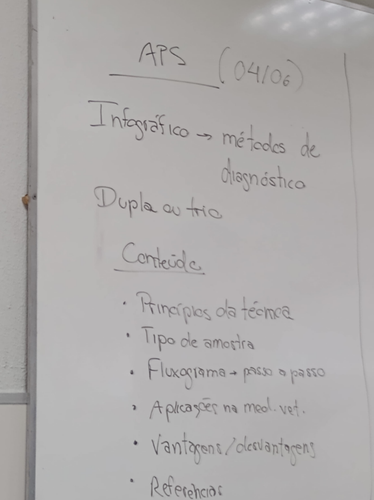 APS (04/06)
Infográfico → métodos de
diagnóstico
Dupla ou trio
Conteúdo
• Princípios da técnica
• Tipo de amostra
• Fluxograma → passo a passo
• Aplicações na med. vet.
• Vantagens/desvantagens
• Referências